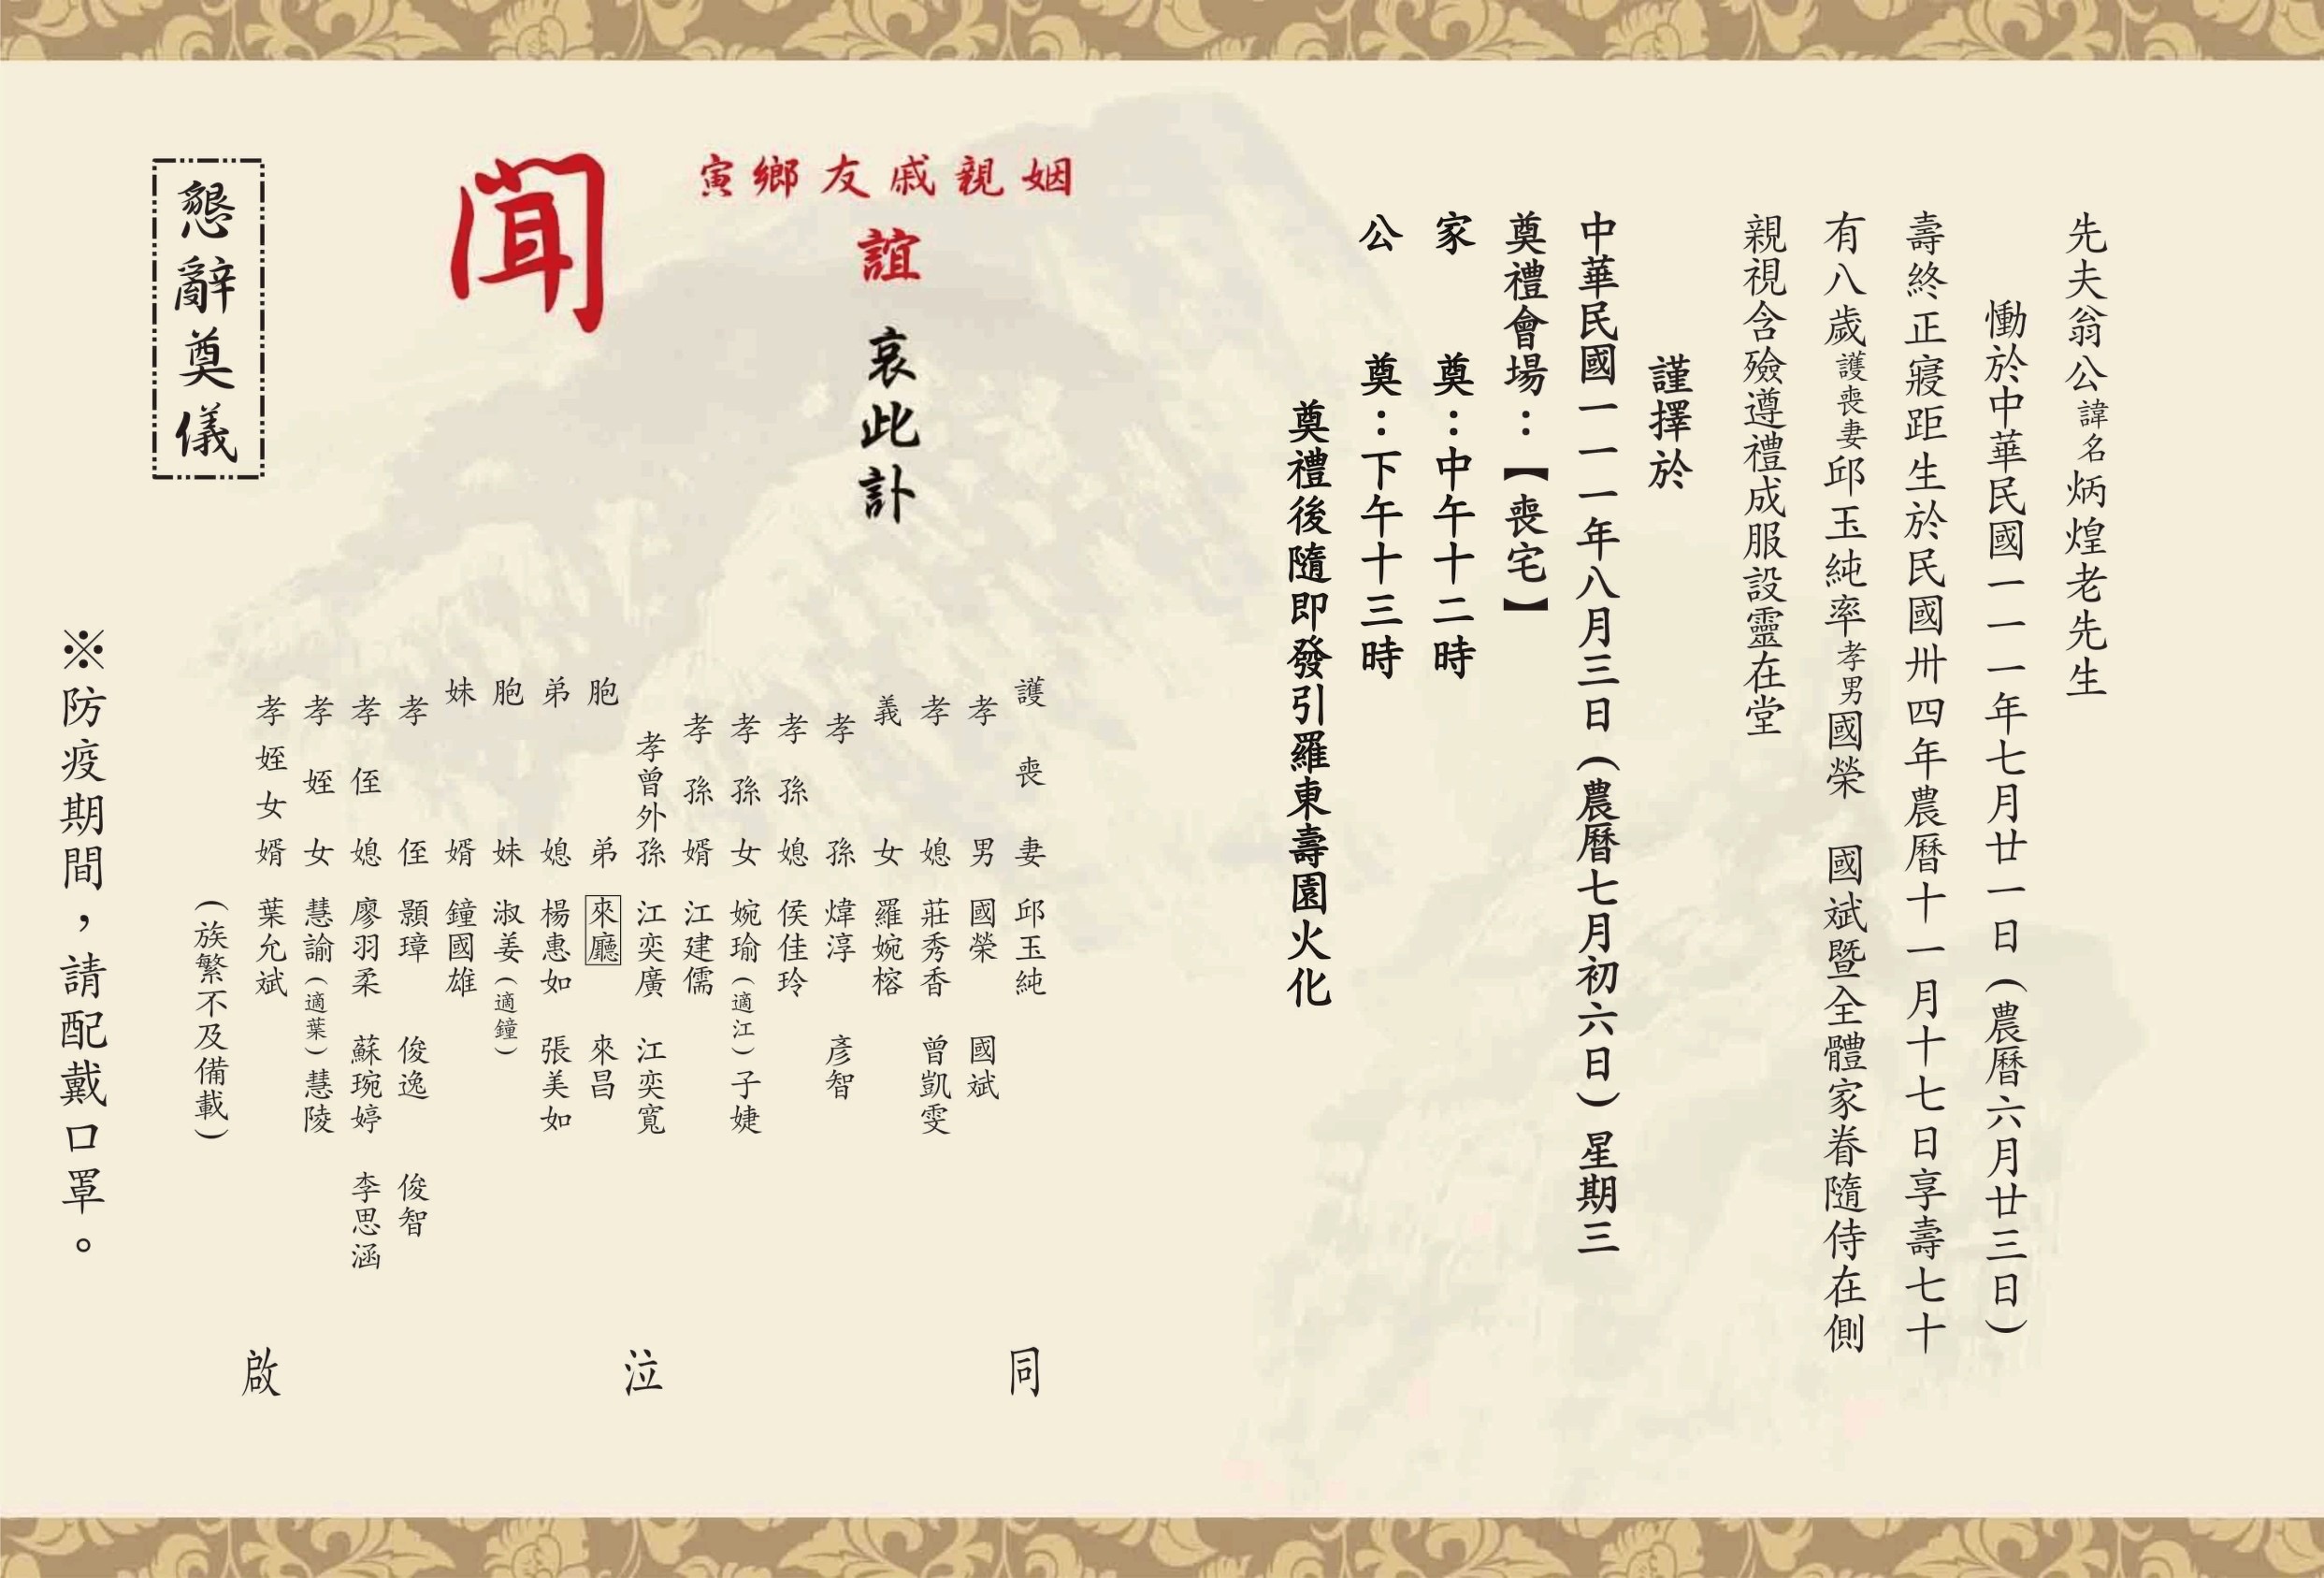 先夫翁公諱名炳煌老先生
慟於中華民國一一一年七月廿一日(農曆六月廿三日)
壽終正寢距生於民國卅四年農曆十一月十七日享壽七十
有八歲護喪妻邱玉純率孝男國榮 國斌暨全體家眷隨侍在側
親視含殮遵禮成服設靈在堂
謹擇於
中華民國一一一年八月三日(農曆七月初六日)星期三
奠禮會場:【喪宅】
家 奠:中午十二時
公 奠:下午十三時
奠禮後隨即發引羅東壽園火化
姻親戚友鄉寅
誼
哀此訃
聞
護喪妻 邱玉純
孝男 國榮 國斌
孝媳 莊秀香 曾凱雯
義女 羅婉榕
孝孫 煒淳 彥智
孝孫媳 侯佳玲
孝孫女 婉瑜(適江)子婕
孝孫婿 江建儒
孝曾外孫 江奕廣 江奕寬
胞弟 來廳 來昌
弟媳 楊惠如 張美如
胞妹 淑姜(適鐘)
妹婿 鐘國雄
孝侄 顥璋 俊逸 俊智
孝侄媳 廖羽柔 蘇琬婷 李思涵
孝姪女 慧諭(適葉)慧陵
孝姪女婿 葉允斌
(族繁不及備載)
同泣啟
懇辭奠儀
※防疫期間，請配戴口罩。